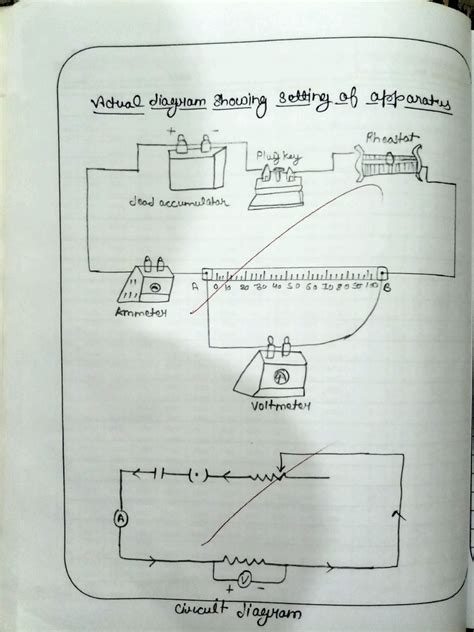 Actual diagram showing setting of apparatus
+ -
Plug key
Rheostat
Lead accumulator
A 0 10 20 30 40 50 60 70 80 90 100 B
Ammeter
A
Voltmeter
A
V
+ -
Circuit diagram